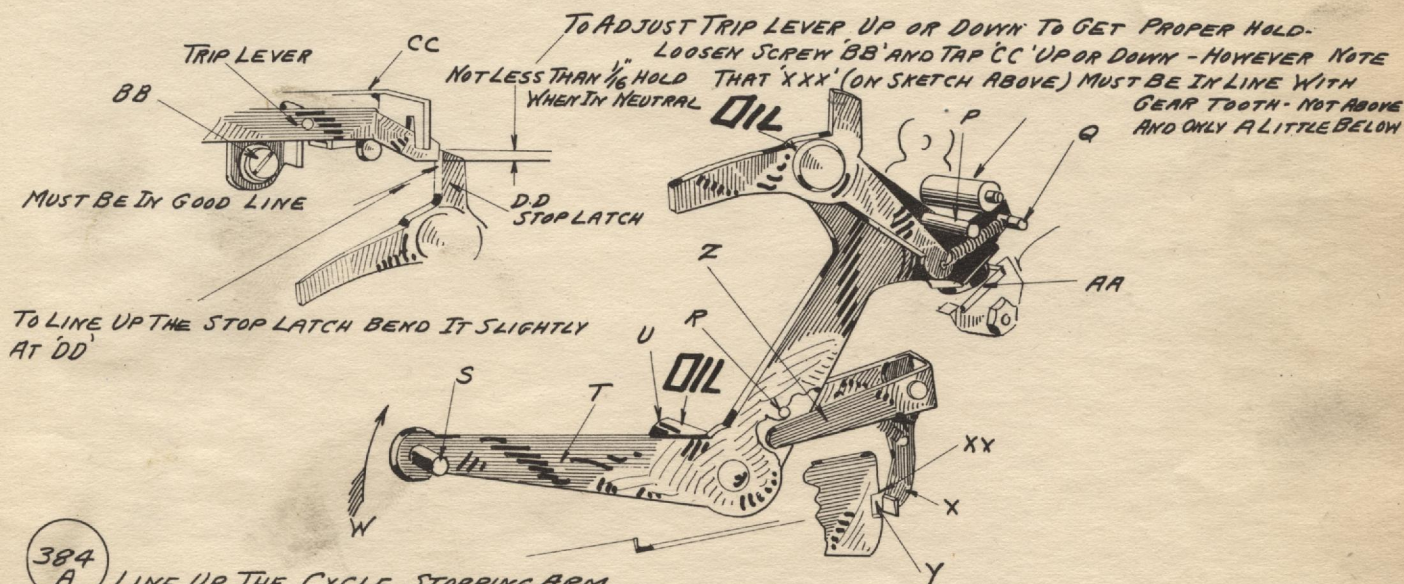 TO ADJUST TRIP LEVER UP OR DOWN TO GET PROPER HOLD-
LOOSEN SCREW 'BB' AND TAP 'CC' UP OR DOWN - HOWEVER NOTE
THAT 'XXX' (ON SKETCH ABOVE) MUST BE IN LINE WITH
GEAR TOOTH - NOT ABOVE
AND ONLY A LITTLE BELOW
TRIP LEVER
CC
BB
NOT LESS THAN 1/16" HOLD
WHEN IN NEUTRAL
OIL
P
Q
MUST BE IN GOOD LINE
D.D
STOP LATCH
Z
AA
TO LINE UP THE STOP LATCH BEND IT SLIGHTLY
AT 'DD'
R
U
OIL
S
T
XX
X
W
Y
384
A
LINE UP THE CYCLE STOPPING ARM